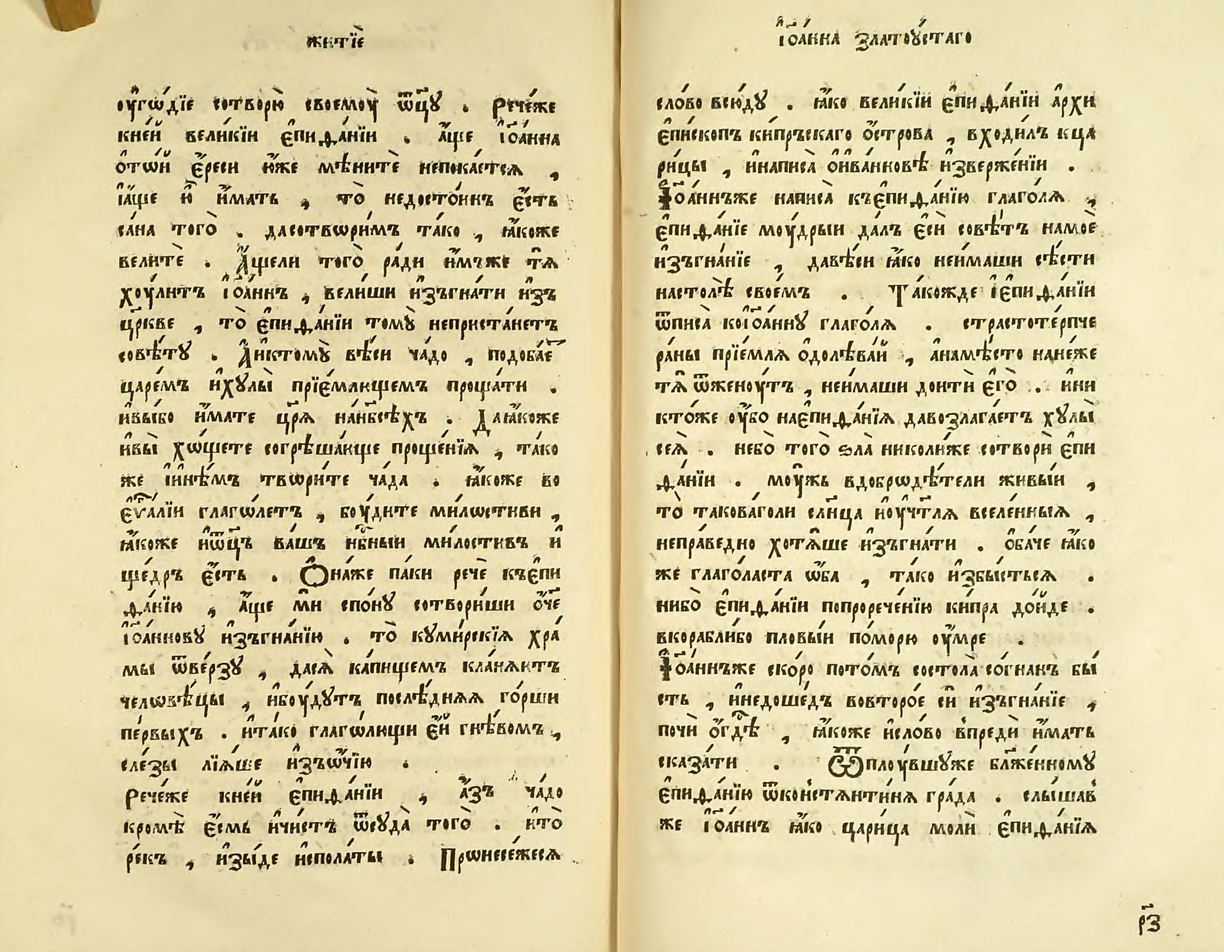 житїѐ
ᲂу҆го́дїе сотворю̀ своемоу̀ ѿцꙋ̀ . Рече́же
кне́й вели́кїи є҆пифа́нїи . а҆́ще і҆ѡа́нна
ѻ҆тѡи є҆́реси ю҆́же мѣни́те непока́ется ,
і҆а҆́ще ю҆̀ и҆́мать , то̀ недосто́инъ є҆́сть
са́на того̀ . дасотвѡри́мъ та́ко , ꙗ҆́коже
вели́те . А҆́щели того̀ ра́ди и҆́мъже тѧ̀
хоу́литъ і҆ѡа́ннъ , вели́ши и҆зъгна́ти и҆зъ
цр҃кве , то̀ є҆пифа́нїи томꙋ̀ непристане́тъ
совѣ́тꙋ . Диктомꙋ̀ вѣ́си ча́до , подоба́е
царе́мъ и҆хꙋлы̀ прїе́млющемъ проща́ти .
и҆вы́бо и҆́мате цр҃ѧ̀ нан́бсѣхъ . Даꙗ҆́коже
и҆вы̀ хо́щете согрѣша́юще проще́нїѧ , та́ко
же і҆и҆нѣ́мъ твѡри́те ча́да . ꙗ҆́коже во
є҆ѵⷢ҇а́лїи глаго́летъ , боу́дите ми́лѡстиви ,
ꙗ҆́коже и҆ѿц҃ъ ва́шъ нб҃ный ми́лостивъ и҆
ще́дръ є҆́сть . Ѻ҆на́же па́ки речѐ къє҆пи
фа́нїю , а҆́ще мѝ спо́нꙋ сотвори́ши ѻ҆́ч҃е
і҆ѡа́нновꙋ и҆зъгна́нїю . то̀ кꙋ́мирскїѧ хра́
мы ѿве́рзꙋ , дасѧ̀ ка́пищемъ кла́нѧютъ
челѡвѣ́цы , и҆боу́дꙋтъ послѣ́днѧѧ го́рши
пе́рвыхъ . и҆та́ко глаго́лющи є҆́й гнѣ́вомъ ,
сле́зы лїѧ́ше и҆зъѻ҆чїю .
Рече́же кне́й є҆пифа́нїи , а҆́зъ ча́до
кромѣ̀ є҆́смь и҆чи́стъ ѿсꙋда̀ того̀ . и҆то
ре́къ , и҆зы́де и҆спола́ты . Пронесе́жесѧ
і҆ѡа́нна златоу́стаго
сло́во всю́дꙋ . ꙗ҆́ко вели́кїи є҆пифа́нїи а҆рхи
є҆пи́скопъ ки́пръскаго ѻ҆́строва , входи́лъ кца
ри́цы , и҆написа̀ ѻ҆ива́нновѣ и҆звержéнїи .
І҆ѡа́ннъже написа̀ къє҆пифа́нїю глаго́лѧ ,
є҆пифа́нїе моу́дрыи да́лъ є҆сѝ совѣ́тъ намоѐ
и҆зъгна́нїе , да́вѣси ꙗ҆́ко неи́маши сѣ́сти
настолѣ̀ свое́мъ . Та́кожде і҆є҆пифа́нїи
ѿписа̀ коі҆ѡа́ннꙋ глаго́лѧ . страстоте́рпче
ра́ны прїе́млѧ ѻ҆долѣва́й , а҆намѣ́сто нане́же
тѧ̀ ѿженоу́тъ , неи́маши доитѝ є҆гѡ̀ . и҆ни
кто́же ᲂу҆́бо нає҆пифа́нїѧ давозлага́етъ хꙋлы̀
сеѧ̀ . небо̀ того̀ ѕла̀ николи́же сотворѝ є҆пи
фа́нїи . моу́жь вдобродѣ́тели живы́и ,
то̀ таковаго́ли сл҃нца и҆оу҆чт҃лѧ вселе́нныѧ ,
непра́ведно хотѧ́ше и҆зъгна́ти . ѻ҆ба́че ꙗ҆́ко
же глаго́ласта ѻ҆́ба , та́ко и҆збы́стьсѧ .
ни́бо є҆пифа́нїи попроро́ченїю ки́пра до́йде .
вкорабли́бо плові́и помо́рю ᲂу҆́мре .
І҆ѡа́ннъже ско́ро пото́мъ состола̀ со́гнанъ бы́
сть , и҆недоше́дъ вовторо́е сѝ и҆зъгна́нїе ,
почѝ о҆́гдѣ , ꙗ҆́коже и҆сло́во впредѝ и҆́мать
сказа́ти . Ѿплоу́вшꙋже бл҃же́нномꙋ
є҆пифа́нїю ѿконстѧнти́нѧ гра́да . слы́шав
же і҆ѡа́ннъ ꙗ҆́ко цари́ца молѝ є҆пифа́нїѧ
рз҃